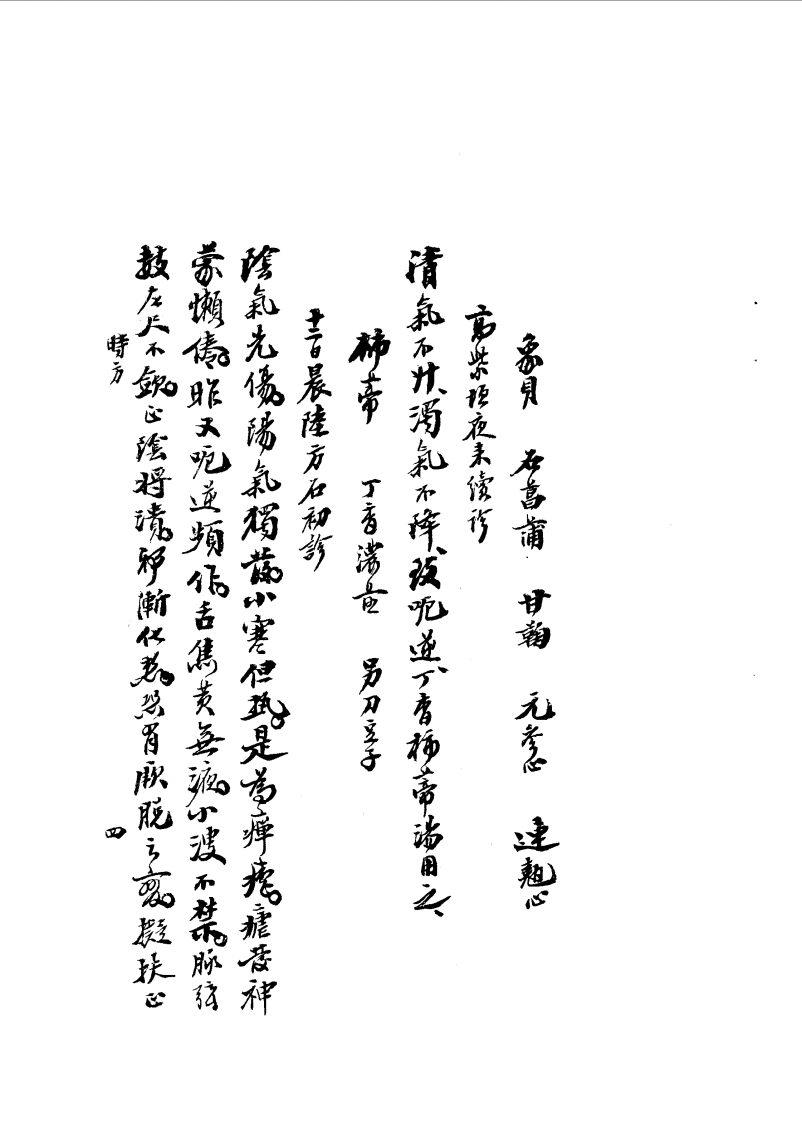 象貝　石菖蒲　甘菊　元參心　連翹心
高紫垣夜来續診
清氣不升、濁氣不降、致呃逆、丁香柿蒂湯用之、
柿蒂　丁香　另刀豆子
十二日晨陸方石初診
陰氣先傷。陽氣獨發。小寒但熱。是為癉瘧。瘧發神
蒙懶倦。昨又呃逆頻作。舌焦黄無液。小溲不禁。脉弦
數左尺不斂。正陰將潰。邪漸化熱。恐有厥脱之變。擬扶正
時方
四